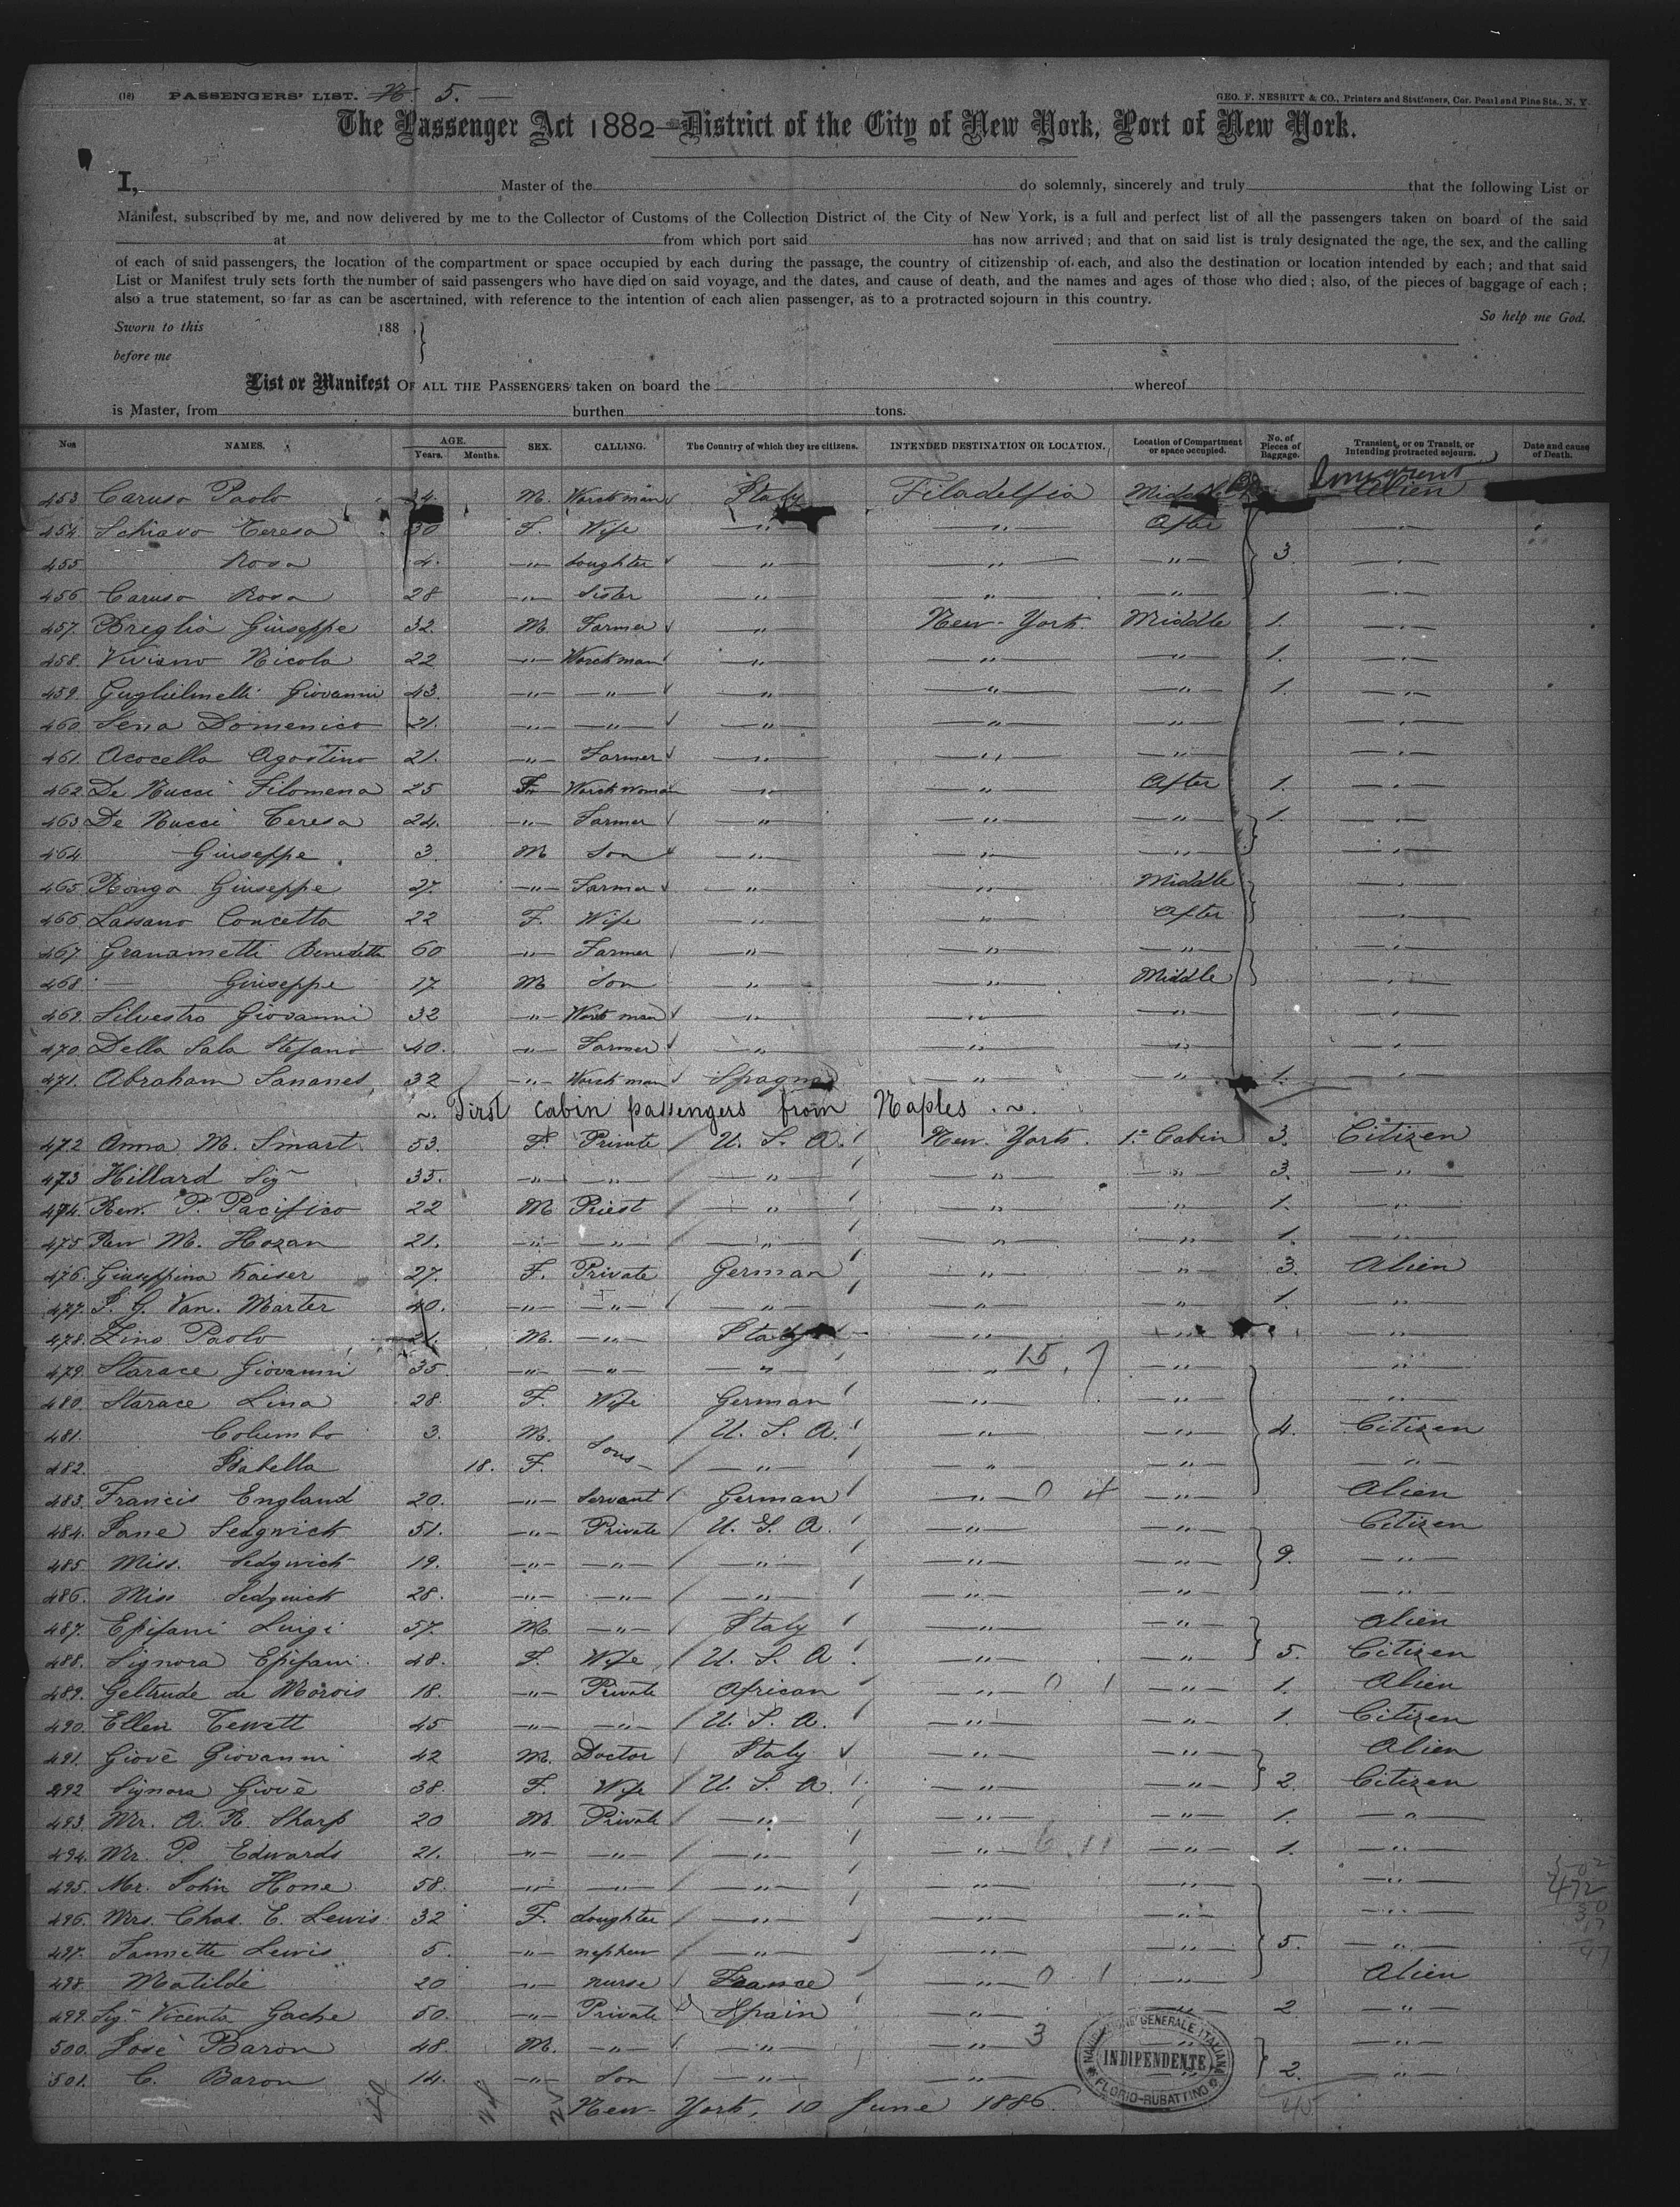 (10) PASSENGERS' LIST. 5. —
GEO. F. NESBITT & CO., Printers and Stationers, Cor. Pearl and Pine Sts., N. Y.
The Passenger Act 1882—District of the City of New York, Port of New York.
I, Master of the do solemnly, sincerely and truly that the following List or
Manifest, subscribed by me, and now delivered by me to the Collector of Customs of the Collection District of the City of New York, is a full and perfect list of all the passengers taken on board of the said
at from which port said has now arrived; and that on said list is truly designated the age, the sex, and the calling
of each of said passengers, the location of the compartment or space occupied by each during the passage, the country of citizenship of each, and also the destination or location intended by each; and that said
List or Manifest truly sets forth the number of said passengers who have died on said voyage, and the dates, and cause of death, and the names and ages of those who died; also, of the pieces of baggage of each;
also a true statement, so far as can be ascertained, with reference to the intention of each alien passenger, as to a protracted sojourn in this country.
So help me God.
Sworn to this 188
before me
List or Manifest OF ALL THE PASSENGERS taken on board the whereof
is Master, from burthen tons.
Nos NAMES. AGE. Years. Months. SEX. CALLING. The Country of which they are citizens. INTENDED DESTINATION OR LOCATION. Location of Compartment or space occupied. No. of Pieces of Baggage. Transient, or on Transit, or Intending protracted sojourn. Date and cause of Death.
453 Caruso Paolo 34. M. Workman Italy Filadelfia Middle Alien
454 Schiavo Teresa 30 F. Wife " " After "
455 Rosa 4. " doughter " " " 3. "
456 Caruso Rosa 28 " Sister " " " "
457. Breglia Giuseppe 32. M. Farmer " New-York. Middle 1. "
458. Viviano Nicola 22 " Workman " " " 1. "
459. Guglielmelli Giovanni 43. " " " " " 1. "
460 Sena Domenico 21. " " " " " "
461. Acocella Agostino 21. " Farmer " " " "
462 De Nucci Filomena 25 F. Workwoman " " After 1. "
463 De Nucci Teresa 24. " Farmer " " " 1. "
464. Giuseppe 3. M Son " " " "
465 Rongo Giuseppe 27. " Farmer " " Middle "
466 Lassano Concetta 22 F. Wife " " After "
467. Granametti Benedetta 60 " Farmer " " " "
468 — Giuseppe 17 M Son " " Middle "
469. Silvestro Giovanni 32 " Workman " " " "
470. Della Sala Stefano 40. " Farmer " " " "
471. Abraham Sananes 32 " Workman Spagna " " 1. "
~. First cabin passengers from Naples . ~.
472 Anna M. Smart. 53. F. Private U. S. A. New-York. 1a Cabin 3. Citizen
473 Hillard Sig 35. " " " " " 3. "
474. Rev. P. Pacifico 22 M Priest " " " 1. "
475 Rev M. Hozan 21. " " " " " 1. "
476. Giuseppina Kaiser 27. F. Private German " " 3. Alien
477. S. G. Van. Marter 40. " " " " " 1. "
478. Zino Paolo 21. M. " Italy " " "
479. Starace Giovanni 35 " " " " 15. 7 " "
480. Starace Lina 28. F. Wife German " " "
481. Columbo 3. M. Sons U. S. A. " " 4. Citizen
482. Isabella 18. F. " " " "
483. Francis England 20. " Servant German " 0 4 " Alien
484. Jane Sedgwick 51. " Private U. S. A. " " Citizen
485 Miss. Sedgwick 19. " " " " " 9. "
486. Miss Sedgwick 28. " " " " " "
487. Epifani Luigi 57. M. " Italy " " Alien
488. Signora Epifani. 48. F. Wife U. S. A. " " 5. Citizen
489. Geltrude de Morois 18. " Private African " 0 1 " 1. Alien
490. Ellen Tewett 45 " " U. S. A. " " 1. Citizen
491. Giovè Giovanni 42 M. Doctor Italy " " Alien
492 Signora Giovè 38. F. Wife U. S. A. " " 2. Citizen
493. Mr. A. R. Sharp 20 M Private " " " 1. "
494. Mr. P. Edwards 21. " " " " 6. 11 " 1. "
495. Mr. John Hone 58. " " " " " "
496. Mrs. Chas. C. Lewis. 32 F. doughter " " " "
497. Jannette Lewis 5. " nephew " " " 5. "
498. Matilde 20 " nurse France " 0 1 " Alien
499. Sig. Vicenta Gache 50. " Private Spain " " 2 "
500. Josè Baron 48. M. " " " 3 " "
501. C. Baron 14. " Son " " " 2. "
New-York, 10 June 1886.
NAVIGAZIONE GENERALE ITALIANA
INDIPENDENTE
FLORIO-RUBATTINO
45
472